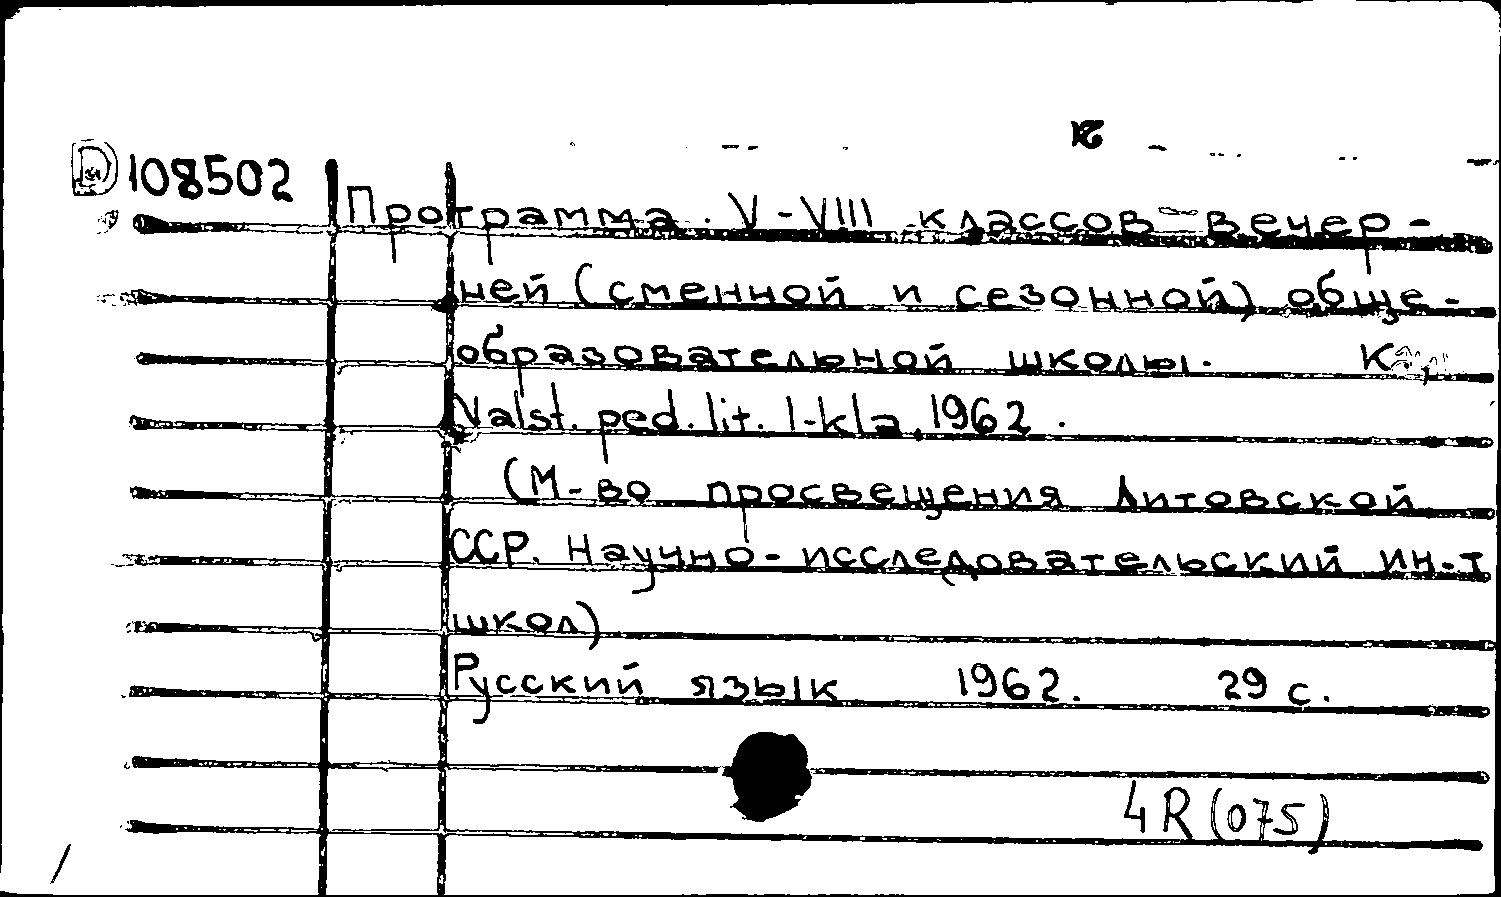 D 108502
Программа. V-VIII классов вечер-
ней (сменной и сезонной) обще-
образовательной школы.
Valst. ped. lit. l-kla, 1962.
(М-во просвещения Литовской
ССР. Научно-исследовательский ин-т
школ)
Русский язык 1962. 29 с.
4R(075)